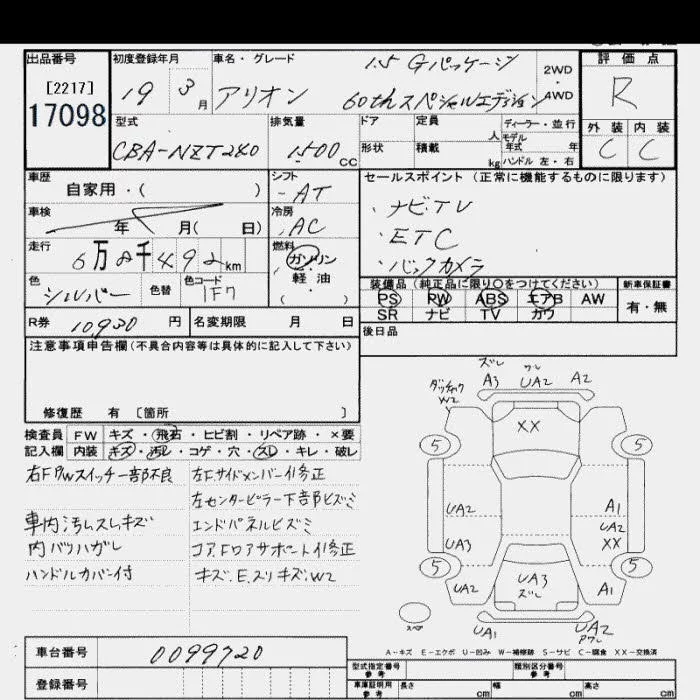 出品番号 初度登録年月 車名・グレード 1.5 Gパッケージ 2WD・4WD 評価点
[2217] 19 3月 アリオン 60thスペシャルエディション R
17098
型式 排気量 ドア 定員 人 ディーラー・並行 外装 内装
CBA-NZT240 1500CC 形状 積載 kg モデル年式 年 ハンドル 左・右 C C
車歴 自家用・( ) シフト AT セールスポイント(正常に機能するものに限ります)
車検 年 月( 日) 冷房 AC ・ナビ.TV
走行 6万8千492km 燃料 ガソリン ・ETC
軽・油 ・バックカメラ
( )
色 シルバー 色替 色コード 1F7 装備品(純正品に限り○をつけてください) 新車保証書
PS PW ABS エアB AW 有・無
SR ナビ TV カワ
R券 10,930円 名変期限 月 日 後日品
注意事項申告欄(不具合内容等は具体的に記入して下さい)
修復歴 有 〔箇所 〕
検査員 FW キズ・飛石・ヒビ割・リペア跡・×要
記入欄 内装 キズ・汚レ・コゲ・穴・スレ・キレ・破レ
右F PWスイッチ一部不良 左Fサイドメンバー亻修正
左センターピラー下部ヒズミ
車内汚レスレキズ エンドパネルヒズミ
内バリハガレ コアFロアサポート亻修正
ハンドルカバー付 キズ.E.スリキズ.W2
ズレ ワレ
A3 UA2 A2
ダッチャク
W2
XX
5 5
UA2 A1
UA2
UA3 XX
5 5
UA2 UA3 A1
ズレ
スペア UA1 UA2
Pワレ
A-キズ E-エクボ U-凹み W-補修跡 S-サビ C-腐食 XX-交換済
車台番号 0099720
登録番号
型式指定番号 参考 類別区分番号 参考
車庫証明用 参考 長さ cm 幅 cm 高さ cm